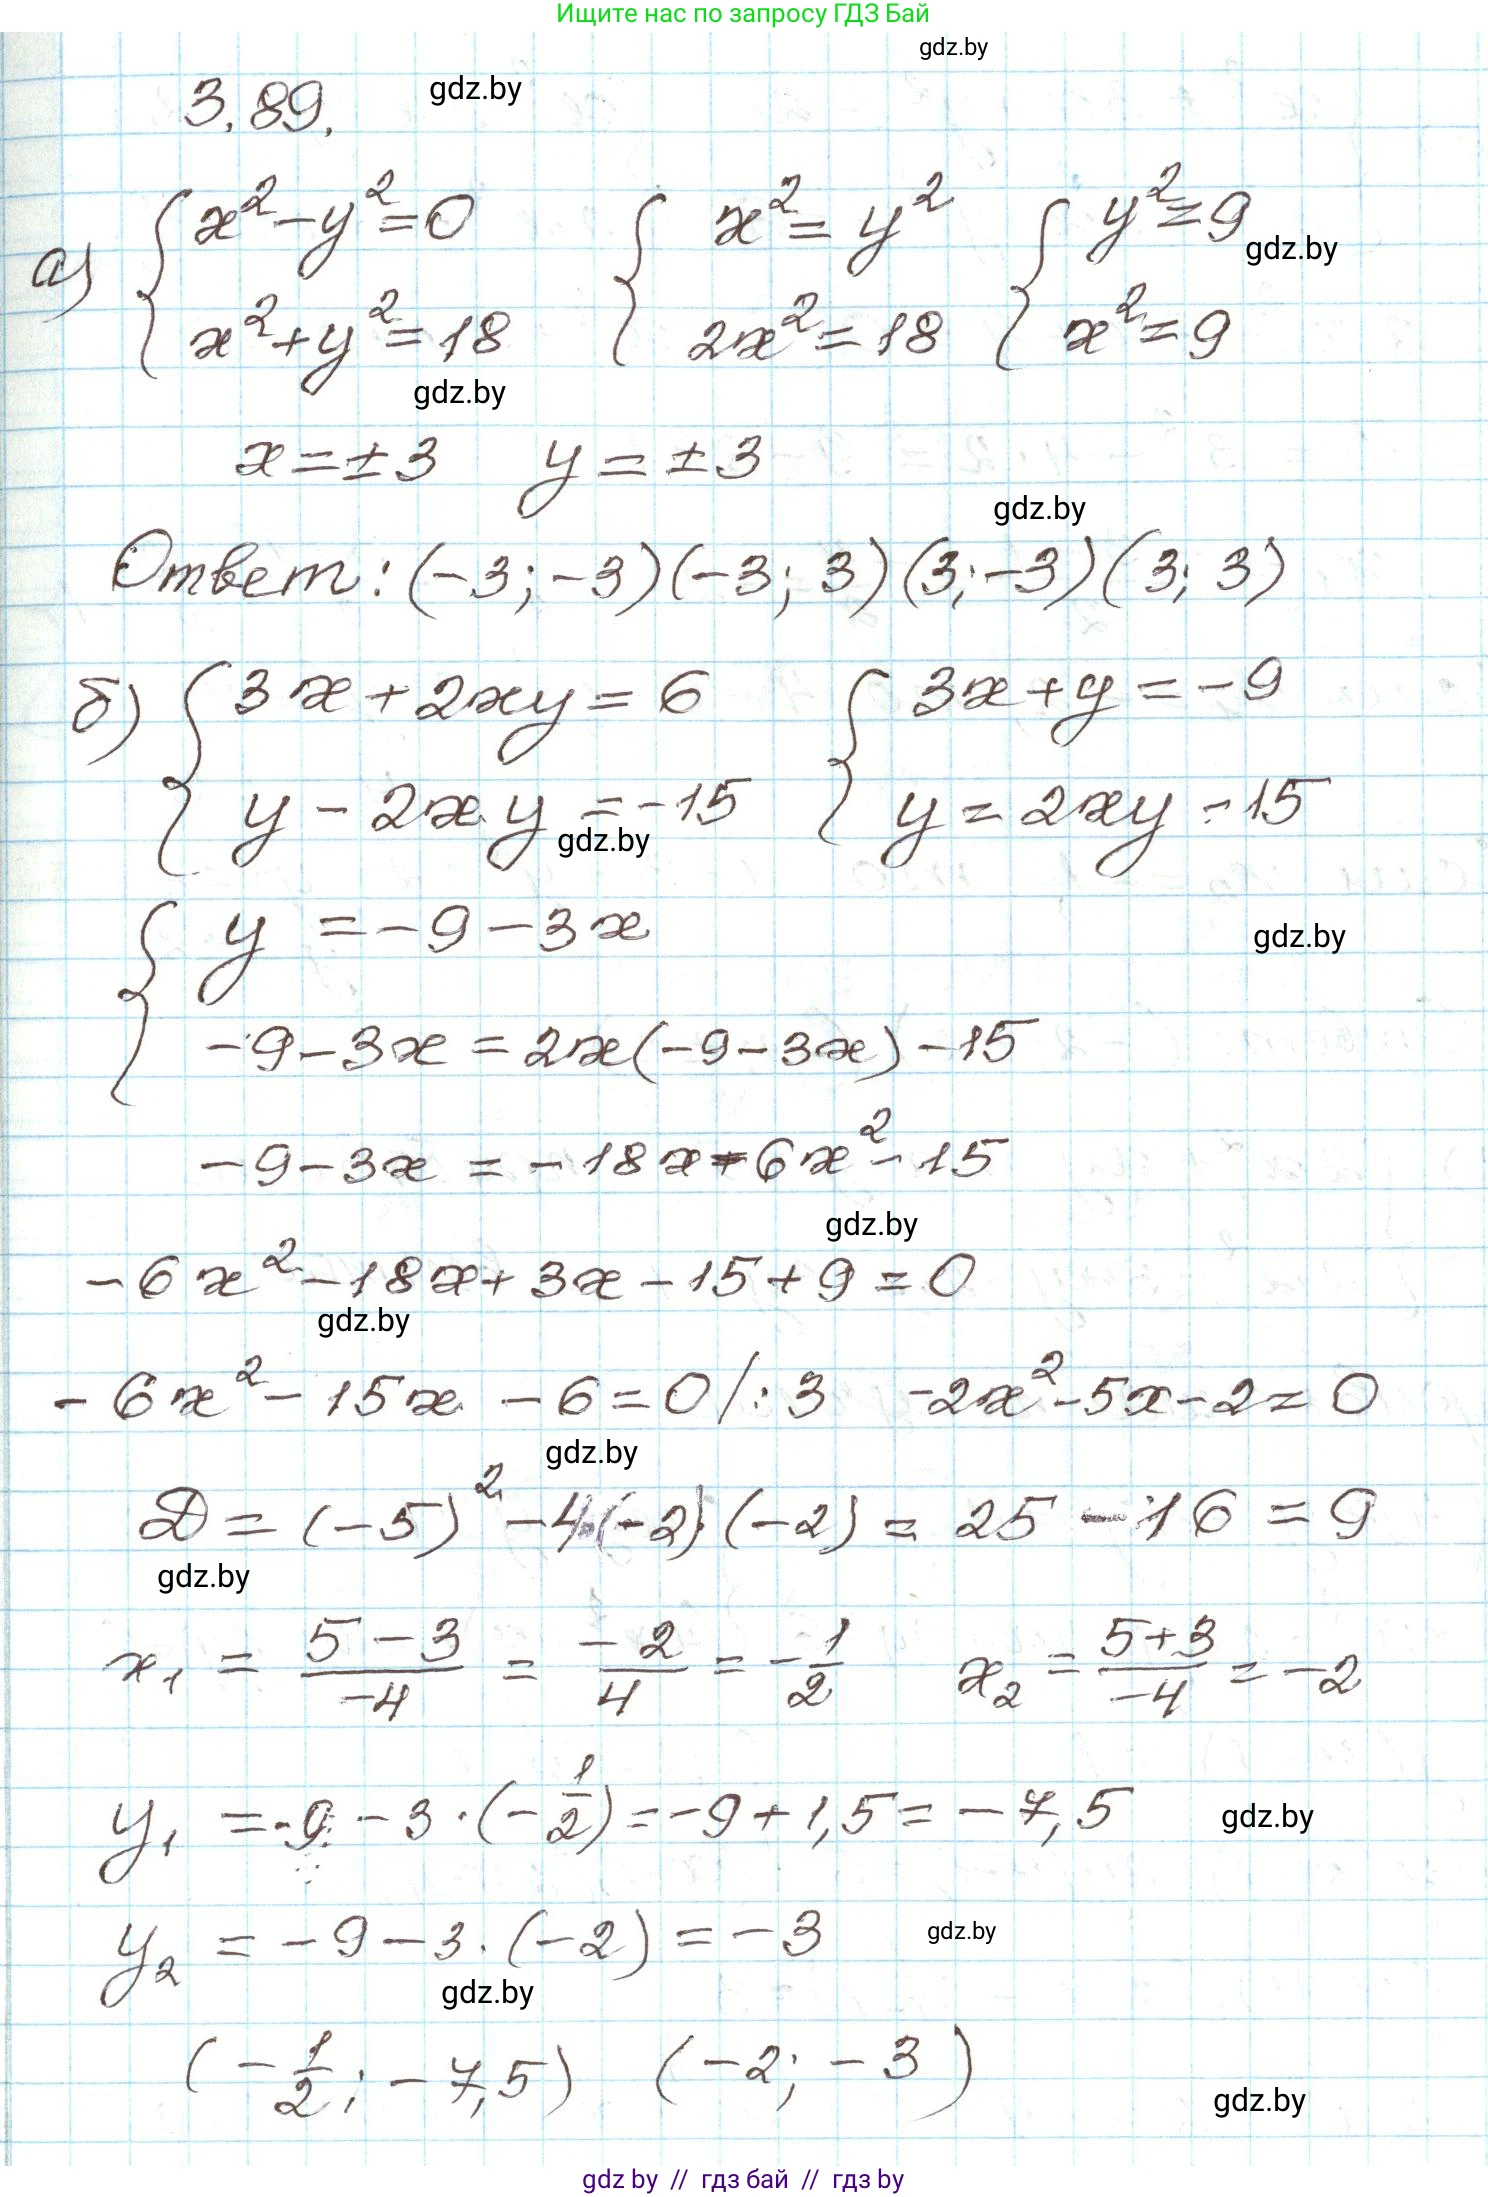 Ищите нас по запросу ГДЗ Бай
gdz.by
3.89. gdz.by
а) { x² - y² = 0 { x² = y² { y² = 9
gdz.by
x² + y² = 18 2x² = 18 x² = 9
gdz.by
x = ±3 y = ±3
gdz.by
Ответ: (-3; -3) (-3; 3) (3; -3) (3; 3)
б) { 3x + 2xy = 6 { 3x + y = -9
y - 2xy = -15 y = 2xy - 15
gdz.by
{ y = -9 - 3x
gdz.by
-9 - 3x = 2x(-9 - 3x) - 15
-9 - 3x = -18x - 6x² - 15
gdz.by
-6x² - 18x + 3x - 15 + 9 = 0
gdz.by
-6x² - 15x - 6 = 0 /: 3 -2x² - 5x - 2 = 0
gdz.by
D = (-5)² - 4·(-2)·(-2) = 25 - 16 = 9
gdz.by
x₁ = (5 - 3)/-4 = -2/4 = -1/2 x₂ = (5+3)/-4 = -2
y₁ = -9 - 3·(-1/2) = -9 + 1,5 = -7,5 gdz.by
y₂ = -9 - 3·(-2) = -3 gdz.by
gdz.by
(-1/2; -7,5) (-2; -3)
gdz.by
gdz.by // гдз бай // гдз by